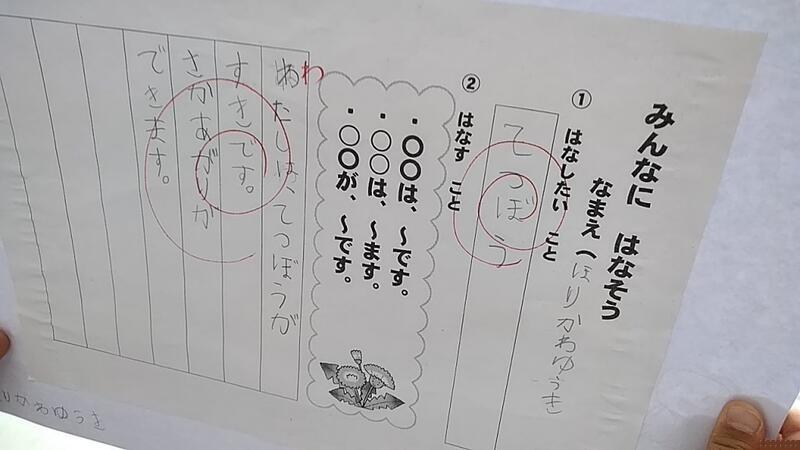 みんなに はなそう
なまえ（ほりかわゆうき
① はなしたい こと
てつぼう
② はなす こと
・〇〇は、～です。
・〇〇は、～ます。
・〇〇が、～です。
わ
たしは、てつぼうが
すきです。
さかあがりが
できます。
りかわゆうき